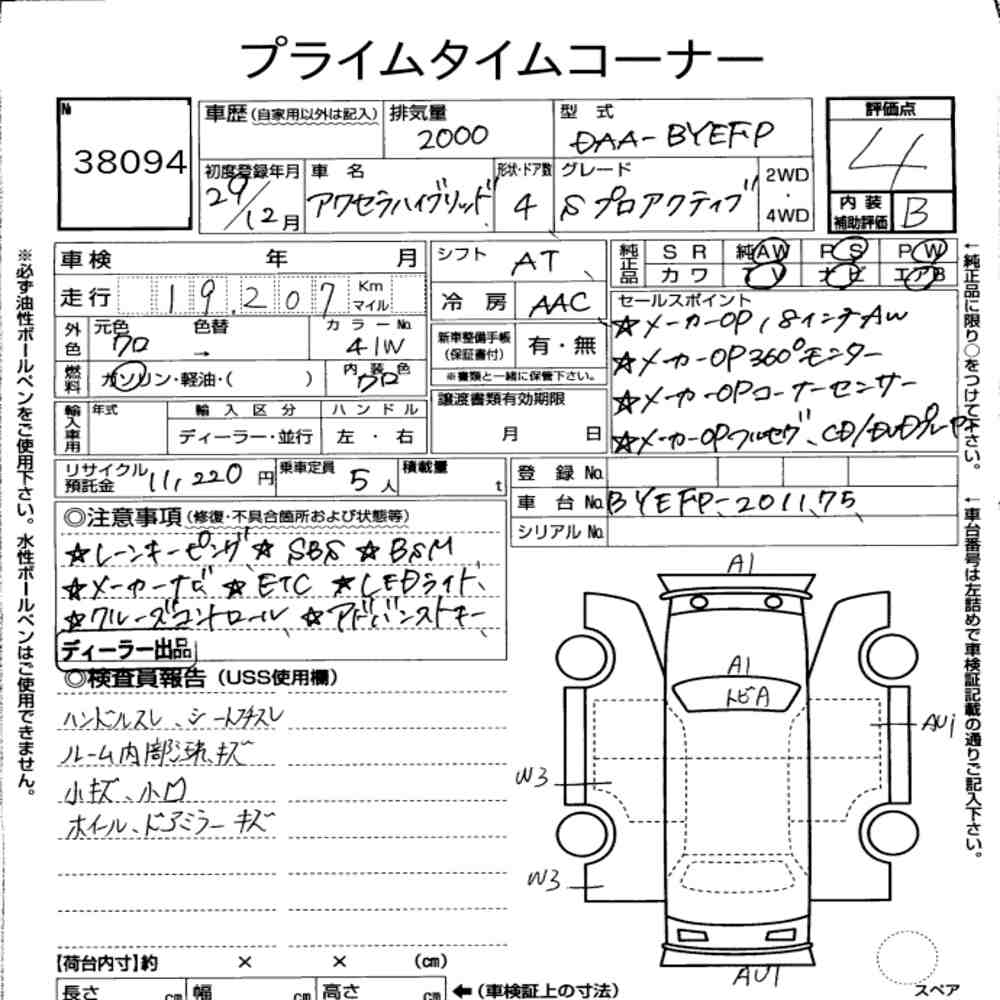 プライムタイムコーナー
№ 38094
車歴(自家用以外は記入) 排気量 2000 型式 DAA-BYEFP 評価点 4
初度登録年月 29/12月 車名 アクセラハイブリッド 形状・ドア数 4 グレード Sプロアクティブ 2WD・4WD 内装補助評価 B
車検 年 月 シフト AT 純正品 SR 純AW PS PW
カワ TV ナビ エアB
走行 19.207 Km マイル 冷房 AAC セールスポイント
☆メーカーOP 18インチAW
外色 元色 クロ 色替 → カラーNo. 41W 新車整備手帳(保証書付) 有・無
☆メーカーOP360°モニター
燃料 ガソリン・軽油・( ) 内装色 クロ ※書類と一緒に保管下さい。
☆メーカーOPコーナーセンサー
輸入車用 年式 輸入区分 ハンドル 譲渡書類有効期限
ディーラー・並行 左・右 月 日
☆メーカーOPフルセグ、CD/DVDプレーヤー
リサイクル預託金 11,220円 乗車定員 5人 積載量 t 登録No.
車台No. BYEFP-201175
シリアルNo.
◎注意事項(修復・不具合箇所および状態等)
☆レーンキーピング ☆SBS ☆BSM
☆メーカーナビ ☆ETC ☆LEDライト、
☆クルーズコントロール、☆アドバンストキー
ディーラー出品
◎検査員報告(USS使用欄)
ハンドルスレ、シート
ルーム内部 キズ
小キズ、小凹
ホイール、ドアミラーキズ
A1
A1
トビA
AU1
W3
W3
AU1
スペア
【荷台内寸】約 × × (cm)
長さ cm 幅 cm 高さ cm ←(車検証上の寸法)
※必ず油性ボールペンをご使用下さい。水性ボールペンはご使用できません。
←純正品に限り○をつけて下さい。
←車台番号は左詰めで車検証記載の通りご記入下さい。